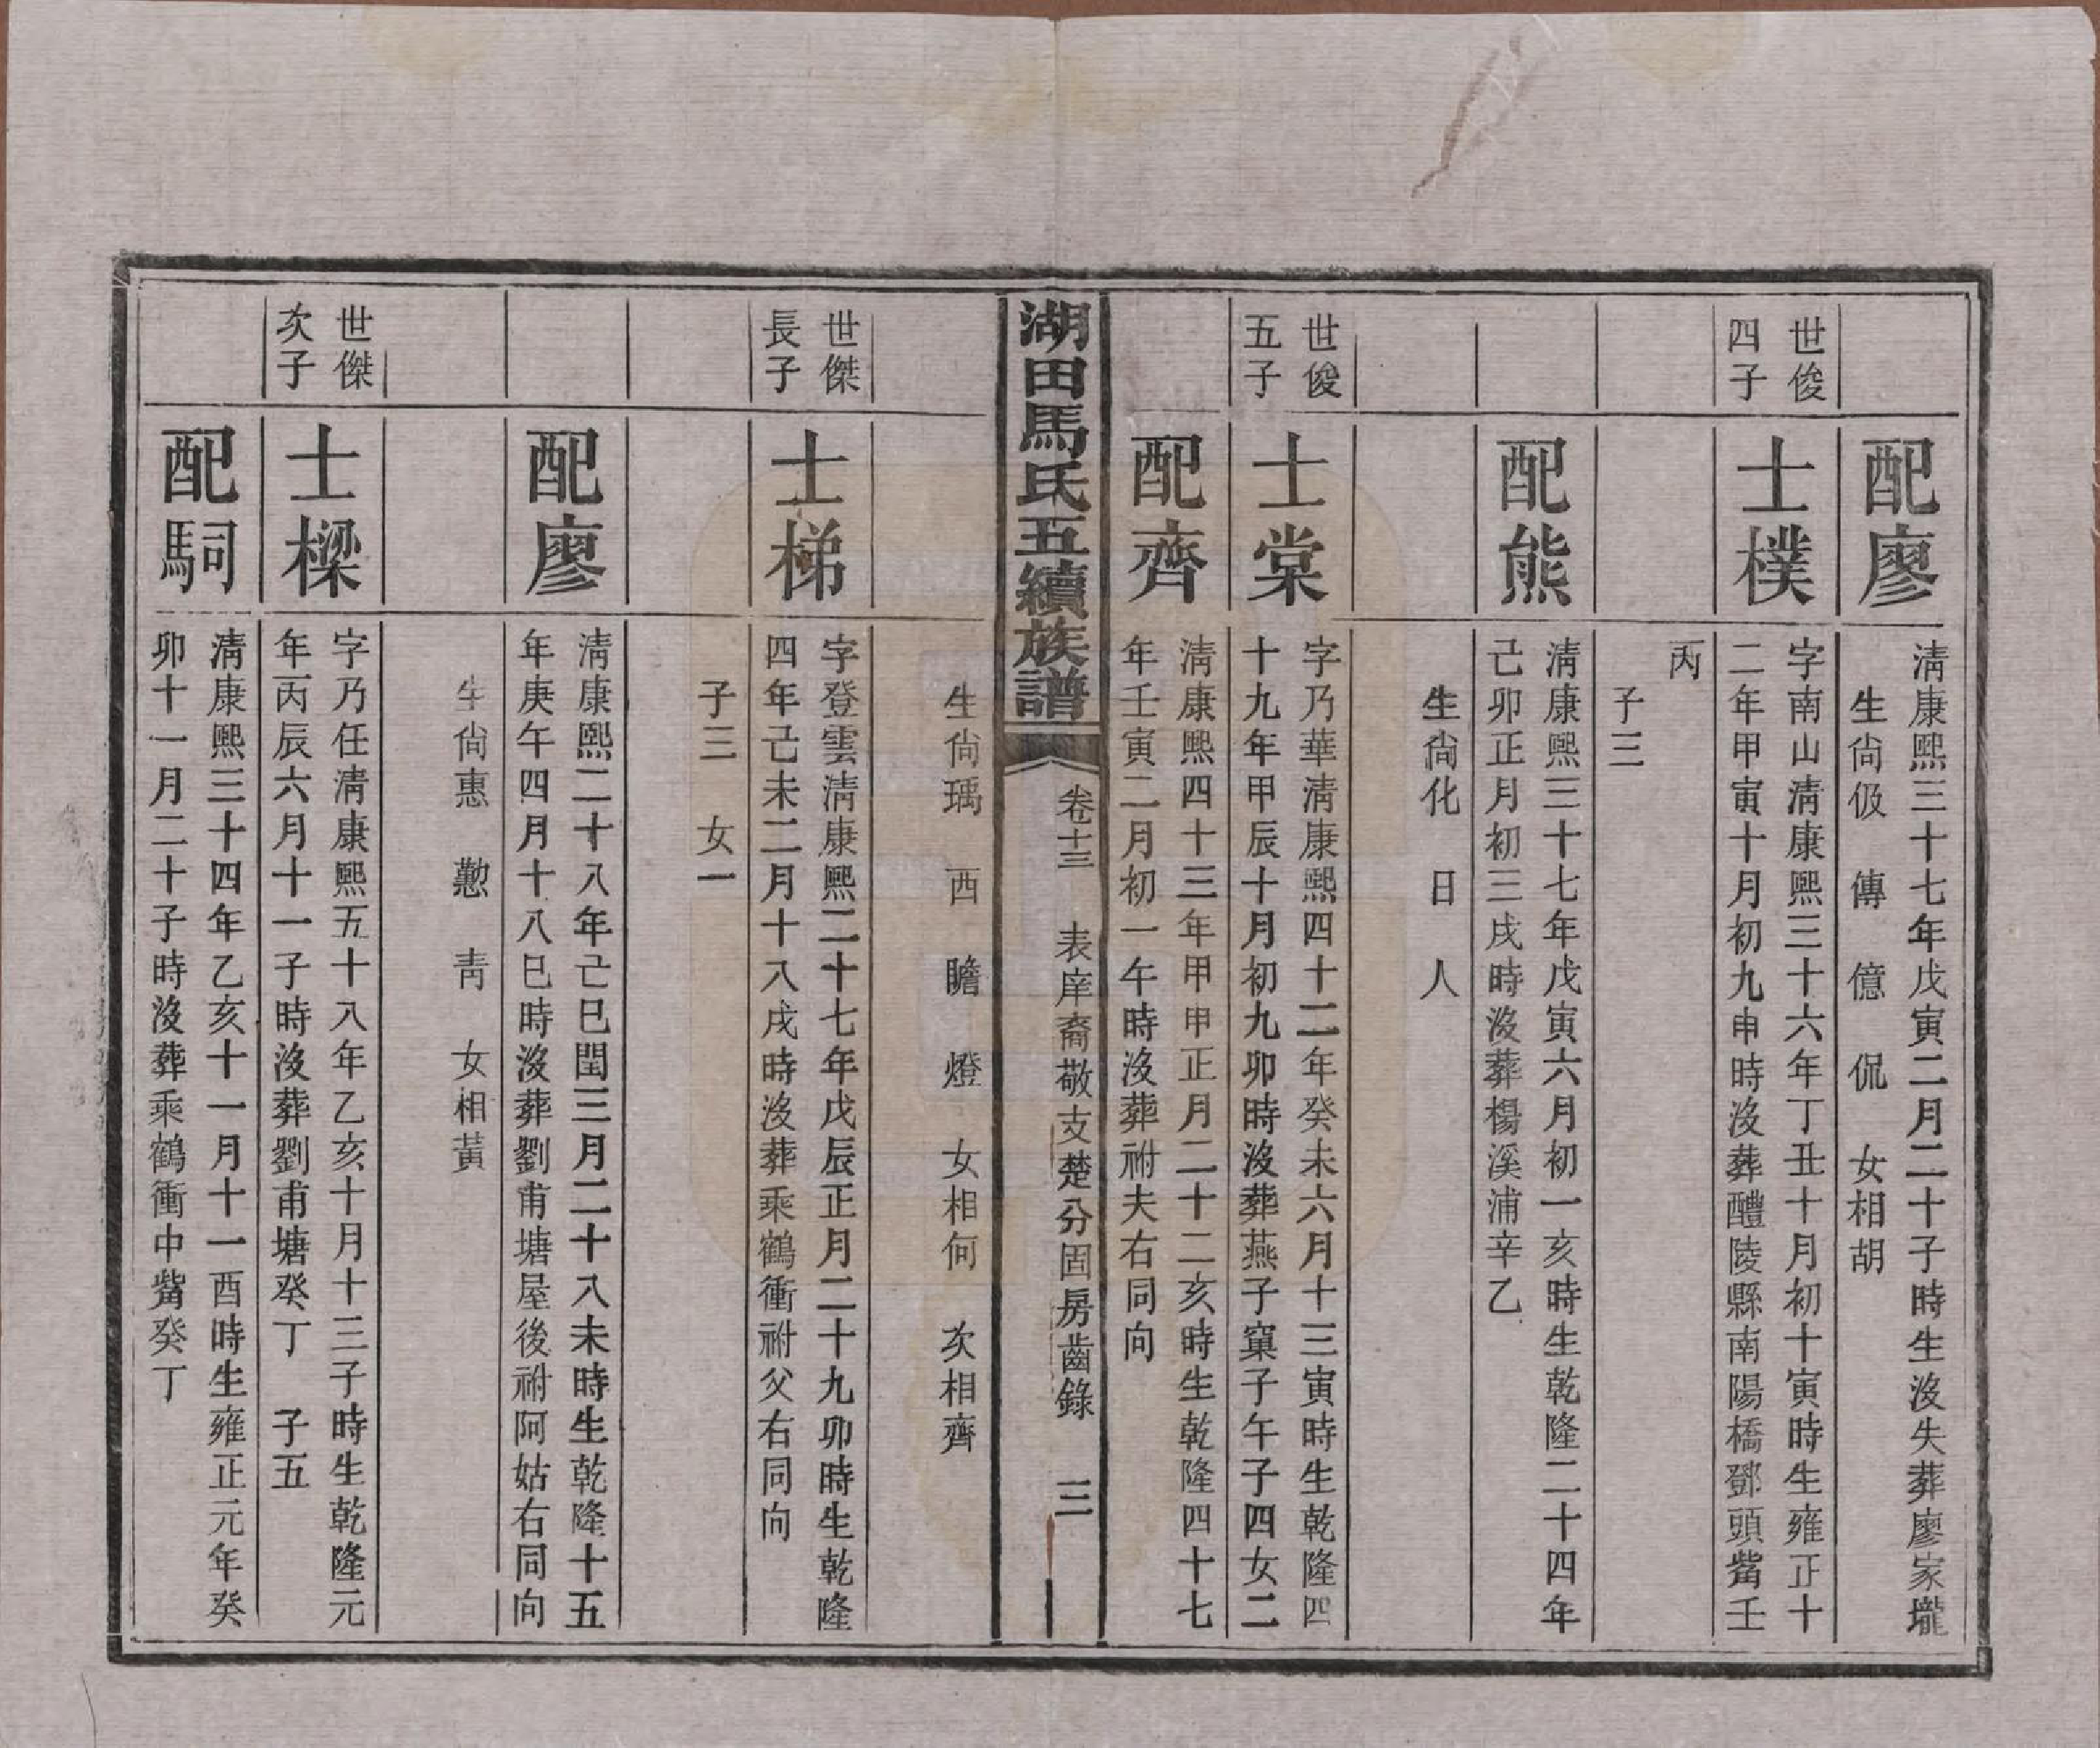 配廖
清康熙三十七年戊寅二月二十子時生沒失葬廖家壠
生尙伋　傳　億　侃　女相胡
世俊
四子
士樸
字南山清康熙三十六年丁丑十月初十寅時生雍正十
二年甲寅十月初九申時沒葬醴陵縣南陽橋鄧頭觜壬
丙
子三
配熊
清康熙三十七年戊寅六月初一亥時生乾隆二十四年
己卯正月初三戌時沒葬楊溪浦辛乙
生尙化　日　人
世俊
五子
士棠
字乃華清康熙四十二年癸未六月十三寅時生乾隆四
十九年甲辰十月初九卯時沒葬燕子窠子午子四女二
配齊
清康熙四十三年甲申正月二十二亥時生乾隆四十七
年壬寅二月初一午時沒葬祔夫右同向
湖田馬氏五續族譜
卷十三　表庠裔敬支楚分固房齒錄　三
生尙瑀　西　瞻　燈　女相何　次相齊
世傑
長子
士梯
字登雲清康熙二十七年戊辰正月二十九卯時生乾隆
四年己未二月十八戌時沒葬乘鶴衝祔父右同向
子三　女一
配廖
清康熙二十八年己巳閏三月二十八未時生乾隆十五
年庚午四月十八巳時沒葬劉甫塘屋後祔阿姑右同向
生尙惠　懃　靑　女相黃
世傑
次子
士樑
字乃任清康熙五十八年乙亥十月十三子時生乾隆元
年丙辰六月十一子時沒葬劉甫塘癸丁　子五
配駉
清康熙三十四年乙亥十一月十一酉時生雍正元年癸
卯十一月二十子時沒葬乘鶴衝中觜癸丁